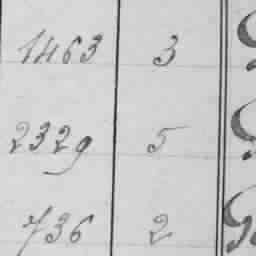 1463 3
2329 5
736 2